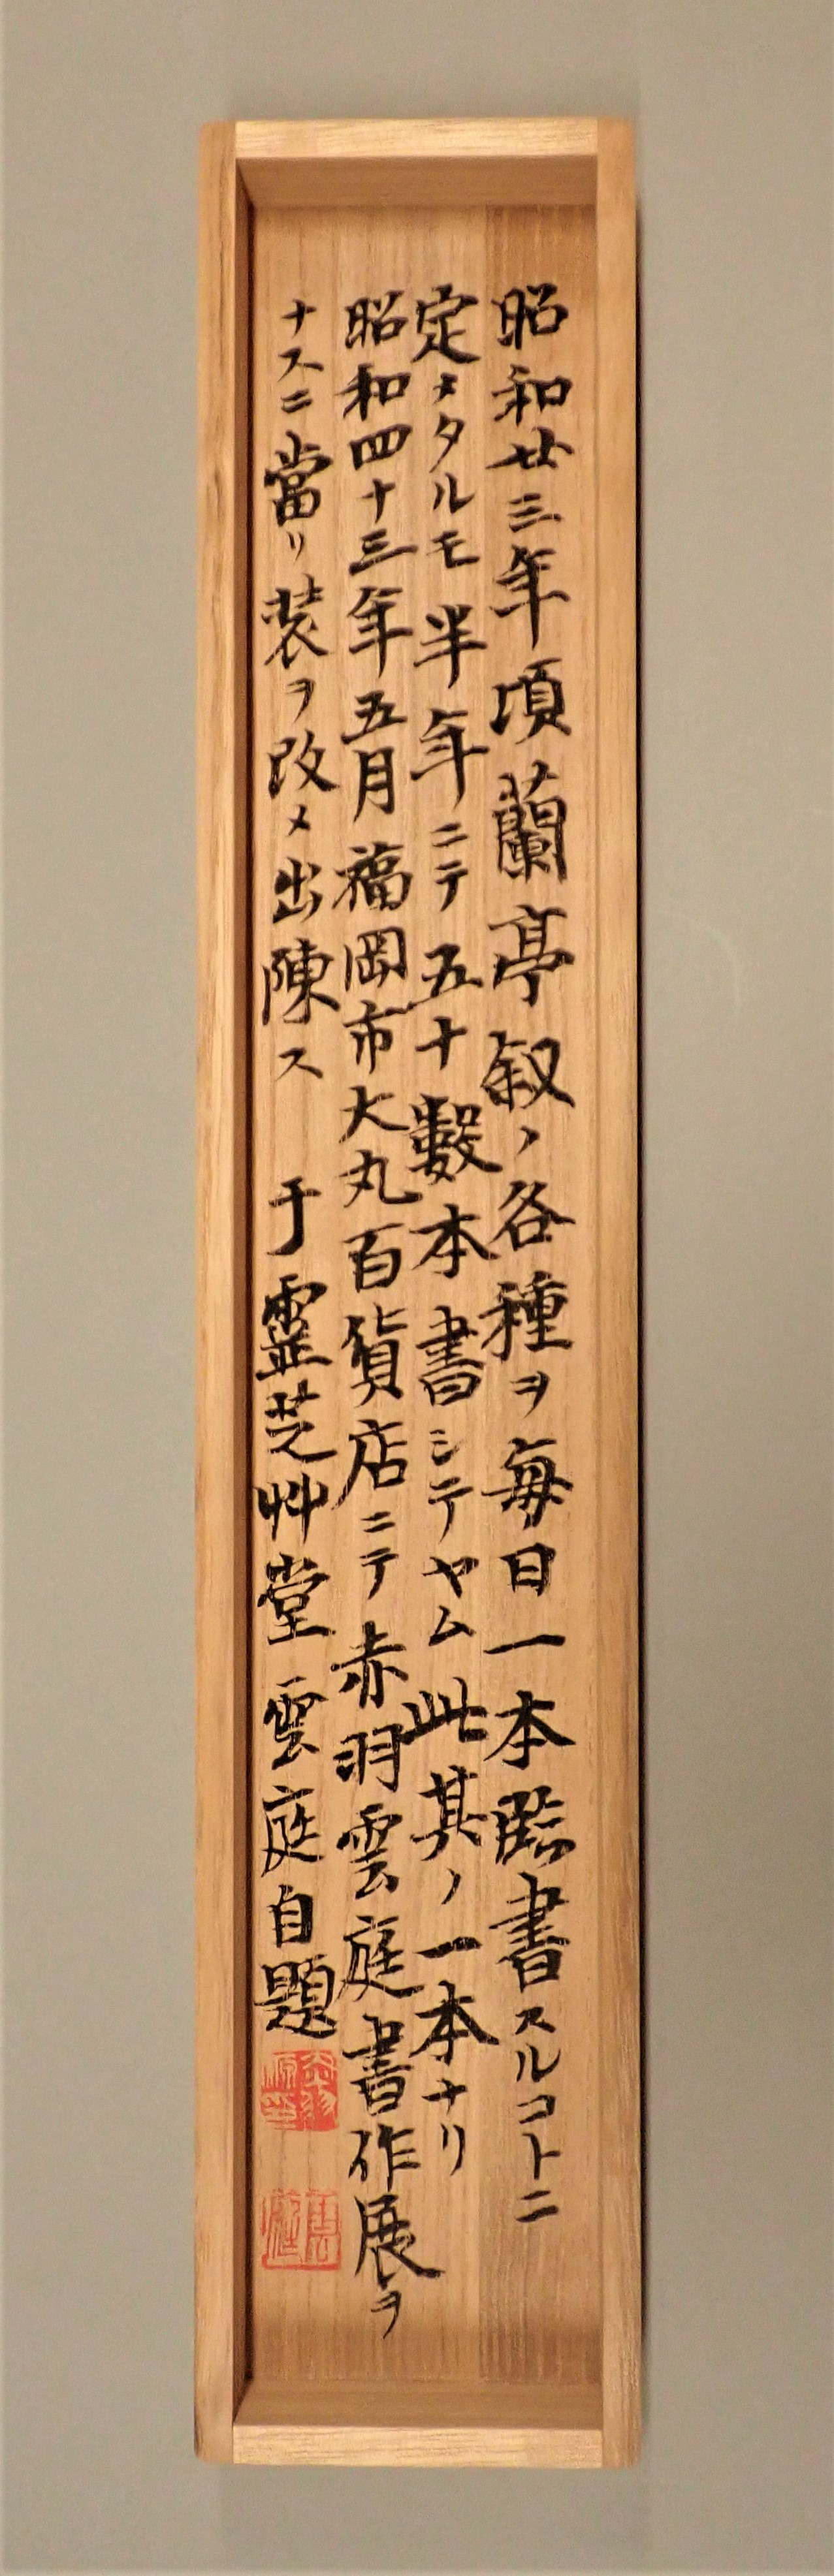 昭和廿三年頃蘭亭叙ノ各種ヲ毎日一本臨書スルコトニ
定メタルモ半年ニテ五十數本書シテヤム此其ノ一本ナリ
昭和四十三年五月福岡市大丸百貨店ニテ赤羽雲庭書作展ヲ
ナスニ當リ装ヲ改メ出陳ス 于靈芝艸堂 雲庭自題
雲庭